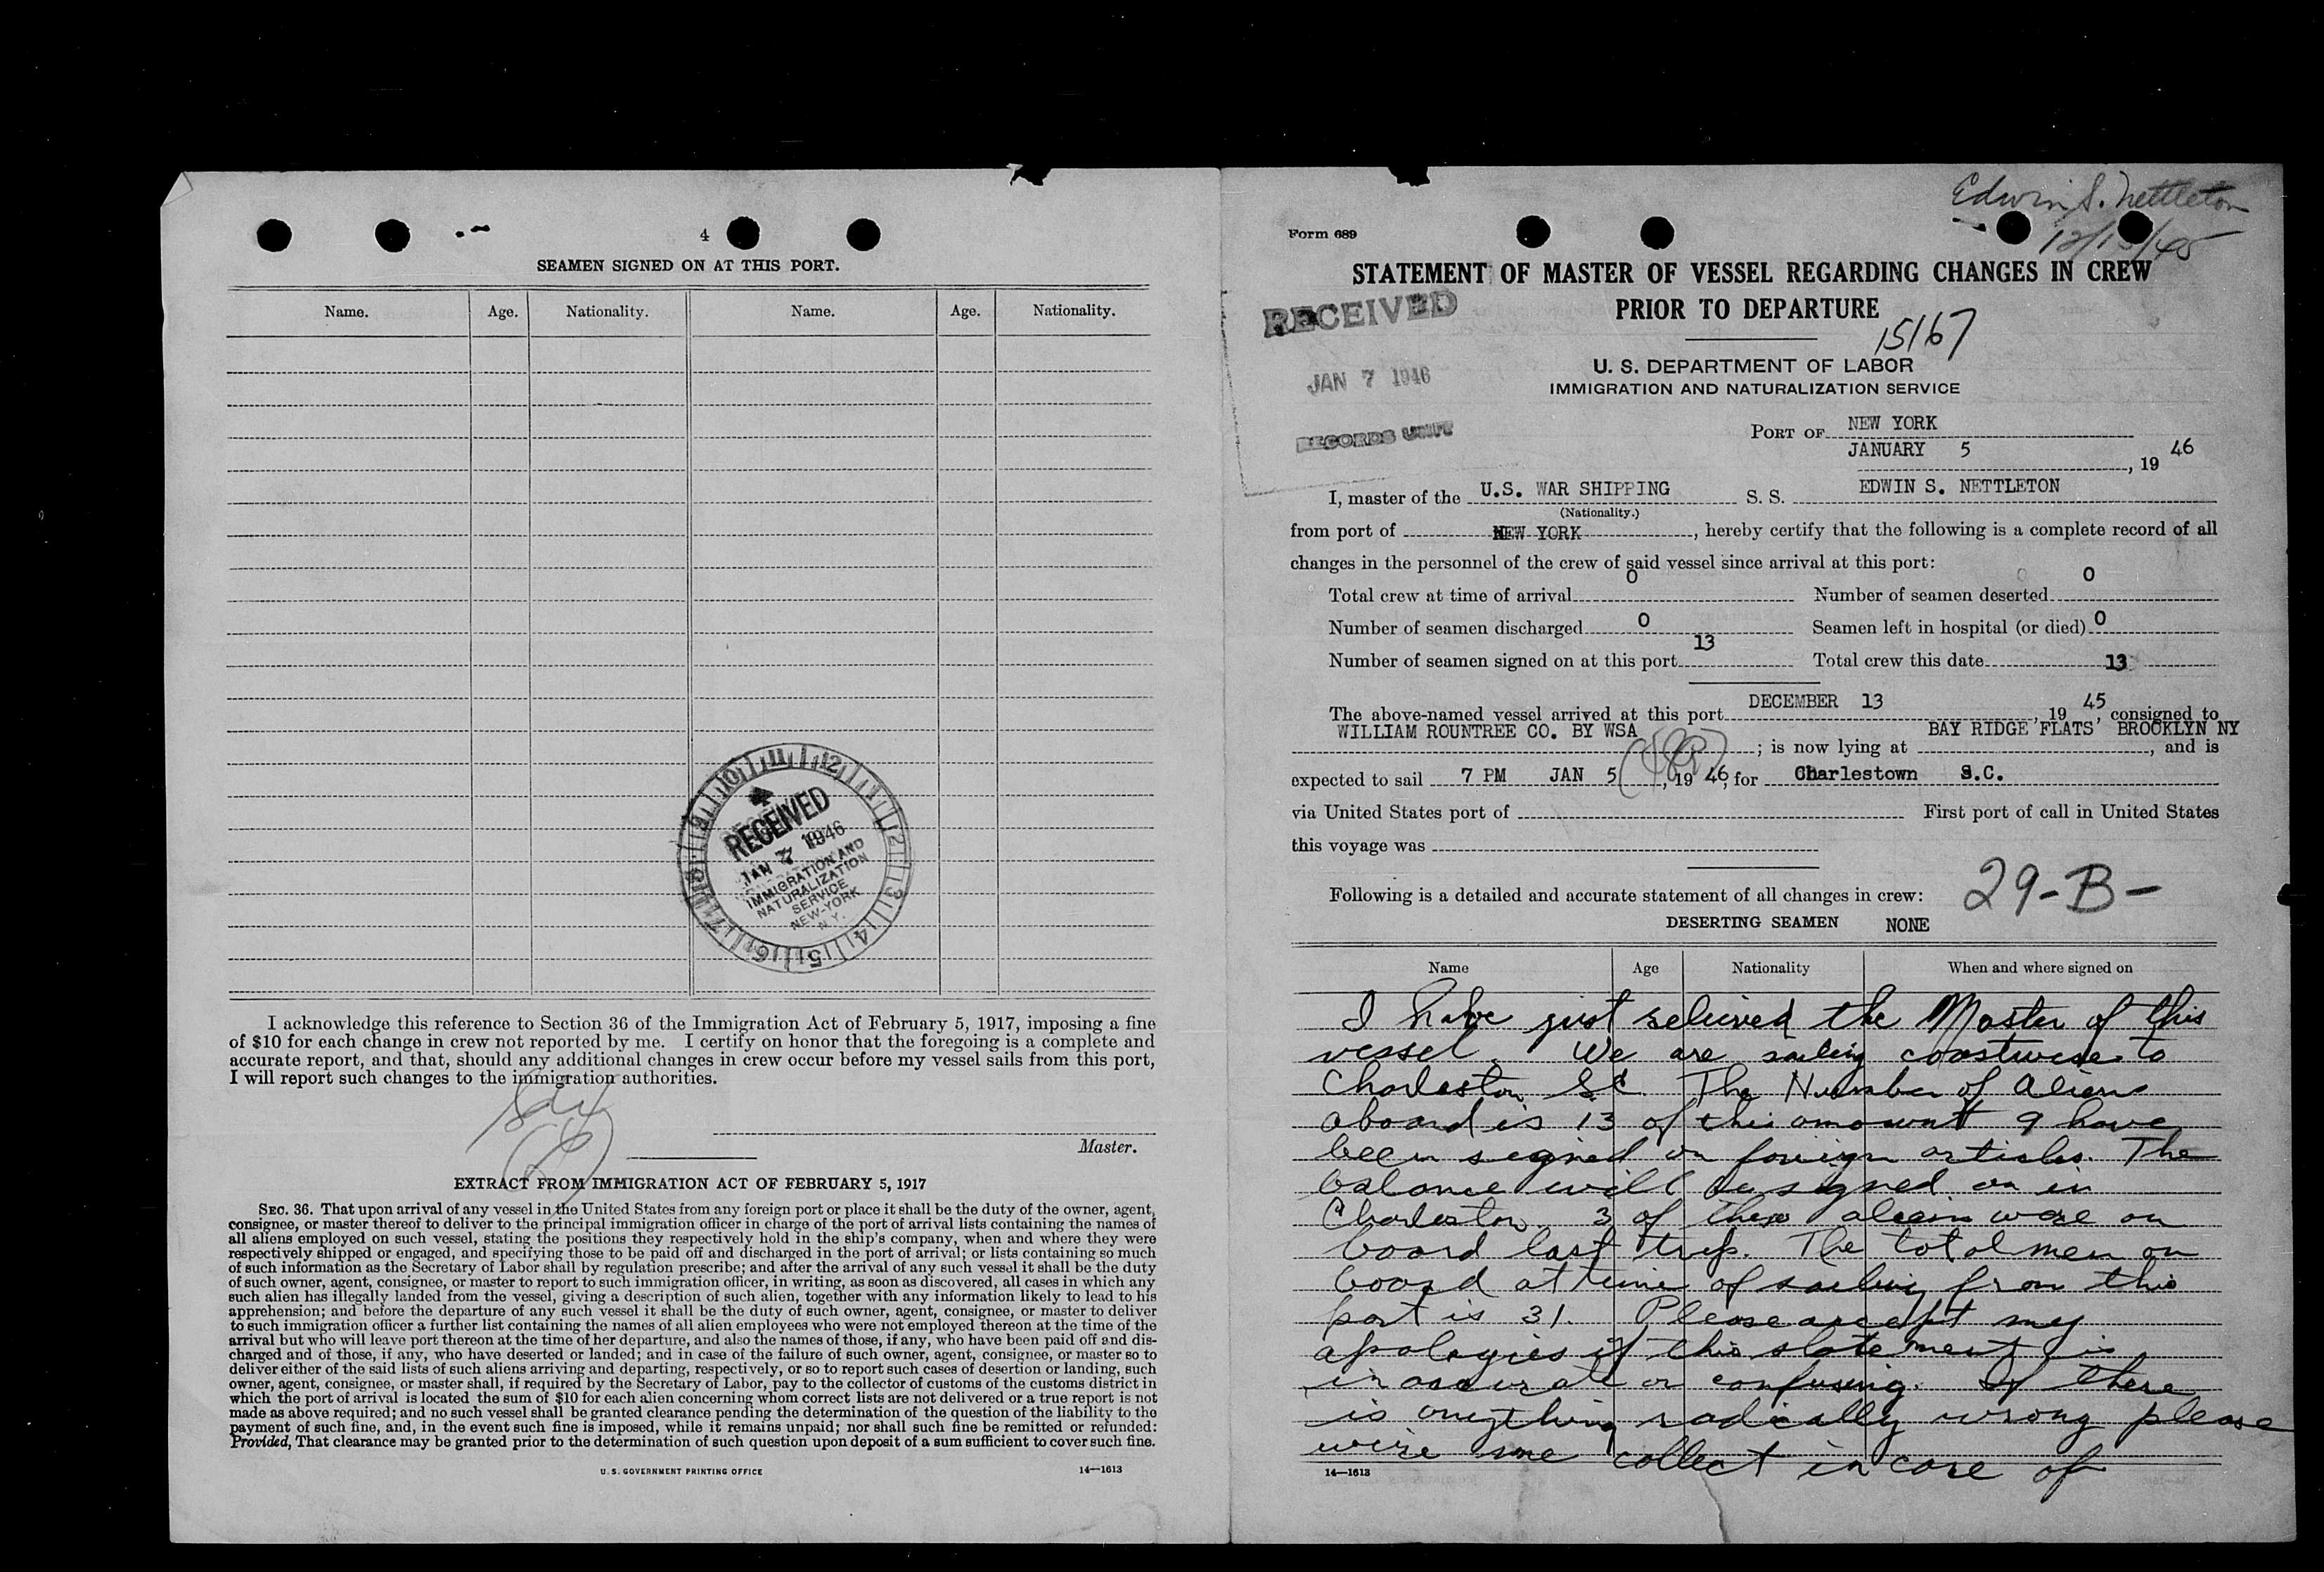 4
SEAMEN SIGNED ON AT THIS PORT.
Name. Age. Nationality. Name. Age. Nationality.
RECEIVED
JAN 7 1946
IMMIGRATION AND
NATURALIZATION
SERVICE
NEW-YORK
N.Y.
I acknowledge this reference to Section 36 of the Immigration Act of February 5, 1917, imposing a fine
of $10 for each change in crew not reported by me. I certify on honor that the foregoing is a complete and
accurate report, and that, should any additional changes in crew occur before my vessel sails from this port,
I will report such changes to the immigration authorities.
Master.
EXTRACT FROM IMMIGRATION ACT OF FEBRUARY 5, 1917
SEC. 36. That upon arrival of any vessel in the United States from any foreign port or place it shall be the duty of the owner, agent,
consignee, or master thereof to deliver to the principal immigration officer in charge of the port of arrival lists containing the names of
all aliens employed on such vessel, stating the positions they respectively hold in the ship's company, when and where they were
respectively shipped or engaged, and specifying those to be paid off and discharged in the port of arrival; or lists containing so much
of such information as the Secretary of Labor shall by regulation prescribe; and after the arrival of any such vessel it shall be the duty
of such owner, agent, consignee, or master to report to such immigration officer, in writing, as soon as discovered, all cases in which any
such alien has illegally landed from the vessel, giving a description of such alien, together with any information likely to lead to his
apprehension; and before the departure of any such vessel it shall be the duty of such owner, agent, consignee, or master to deliver
to such immigration officer a further list containing the names of all alien employees who were not employed thereon at the time of the
arrival but who will leave port thereon at the time of her departure, and also the names of those, if any, who have been paid off and dis-
charged and of those, if any, who have deserted or landed; and in case of the failure of such owner, agent, consignee, or master so to
deliver either of the said lists of such aliens arriving and departing, respectively, or so to report such cases of desertion or landing, such
owner, agent, consignee, or master shall, if required by the Secretary of Labor, pay to the collector of customs of the customs district in
which the port of arrival is located the sum of $10 for each alien concerning whom correct lists are not delivered or a true report is not
made as above required; and no such vessel shall be granted clearance pending the determination of the question of the liability to the
payment of such fine, and, in the event such fine is imposed, while it remains unpaid; nor shall such fine be remitted or refunded:
Provided, That clearance may be granted prior to the determination of such question upon deposit of a sum sufficient to cover such fine.
U. S. GOVERNMENT PRINTING OFFICE 14—1613
Edwin S. Nettleton
12/13/45
Form 689
STATEMENT OF MASTER OF VESSEL REGARDING CHANGES IN CREW
PRIOR TO DEPARTURE
15167
RECEIVED
JAN 7 1946
RECORDS UNIT
U. S. DEPARTMENT OF LABOR
IMMIGRATION AND NATURALIZATION SERVICE
PORT OF NEW YORK
JANUARY 5, 19 46
I, master of the U.S. WAR SHIPPING S. S. EDWIN S. NETTLETON
(Nationality.)
from port of NEW YORK, hereby certify that the following is a complete record of all
changes in the personnel of the crew of said vessel since arrival at this port:
Total crew at time of arrival 0 Number of seamen deserted 0
Number of seamen discharged 0 Seamen left in hospital (or died) 0
Number of seamen signed on at this port 13 Total crew this date 13
The above-named vessel arrived at this port DECEMBER 13, 19 45, consigned to
WILLIAM ROUNTREE CO. BY WSA; is now lying at BAY RIDGE FLATS BROOKLYN NY, and is
expected to sail 7 PM JAN 5, 19 46, for Charlestown S.C.
via United States port of First port of call in United States
this voyage was
Following is a detailed and accurate statement of all changes in crew: 29-B-
DESERTING SEAMEN NONE
Name Age Nationality When and where signed on
I have just relieved the Master of this
vessel. We are sailing coastwise to
Charleston S.C. The Number of Aliens
aboard is 13 of this amount 9 have
been signed on foreign articles. The
balance will be signed on in
Charleston. 3 of these aliens were on
board last trip. The total men on
board at time of sailing from this
port is 31. Please accept my
apologies if this statement is
inaccurate or confusing. If there
is anything radically wrong please
wire me collect in care of
14—1613